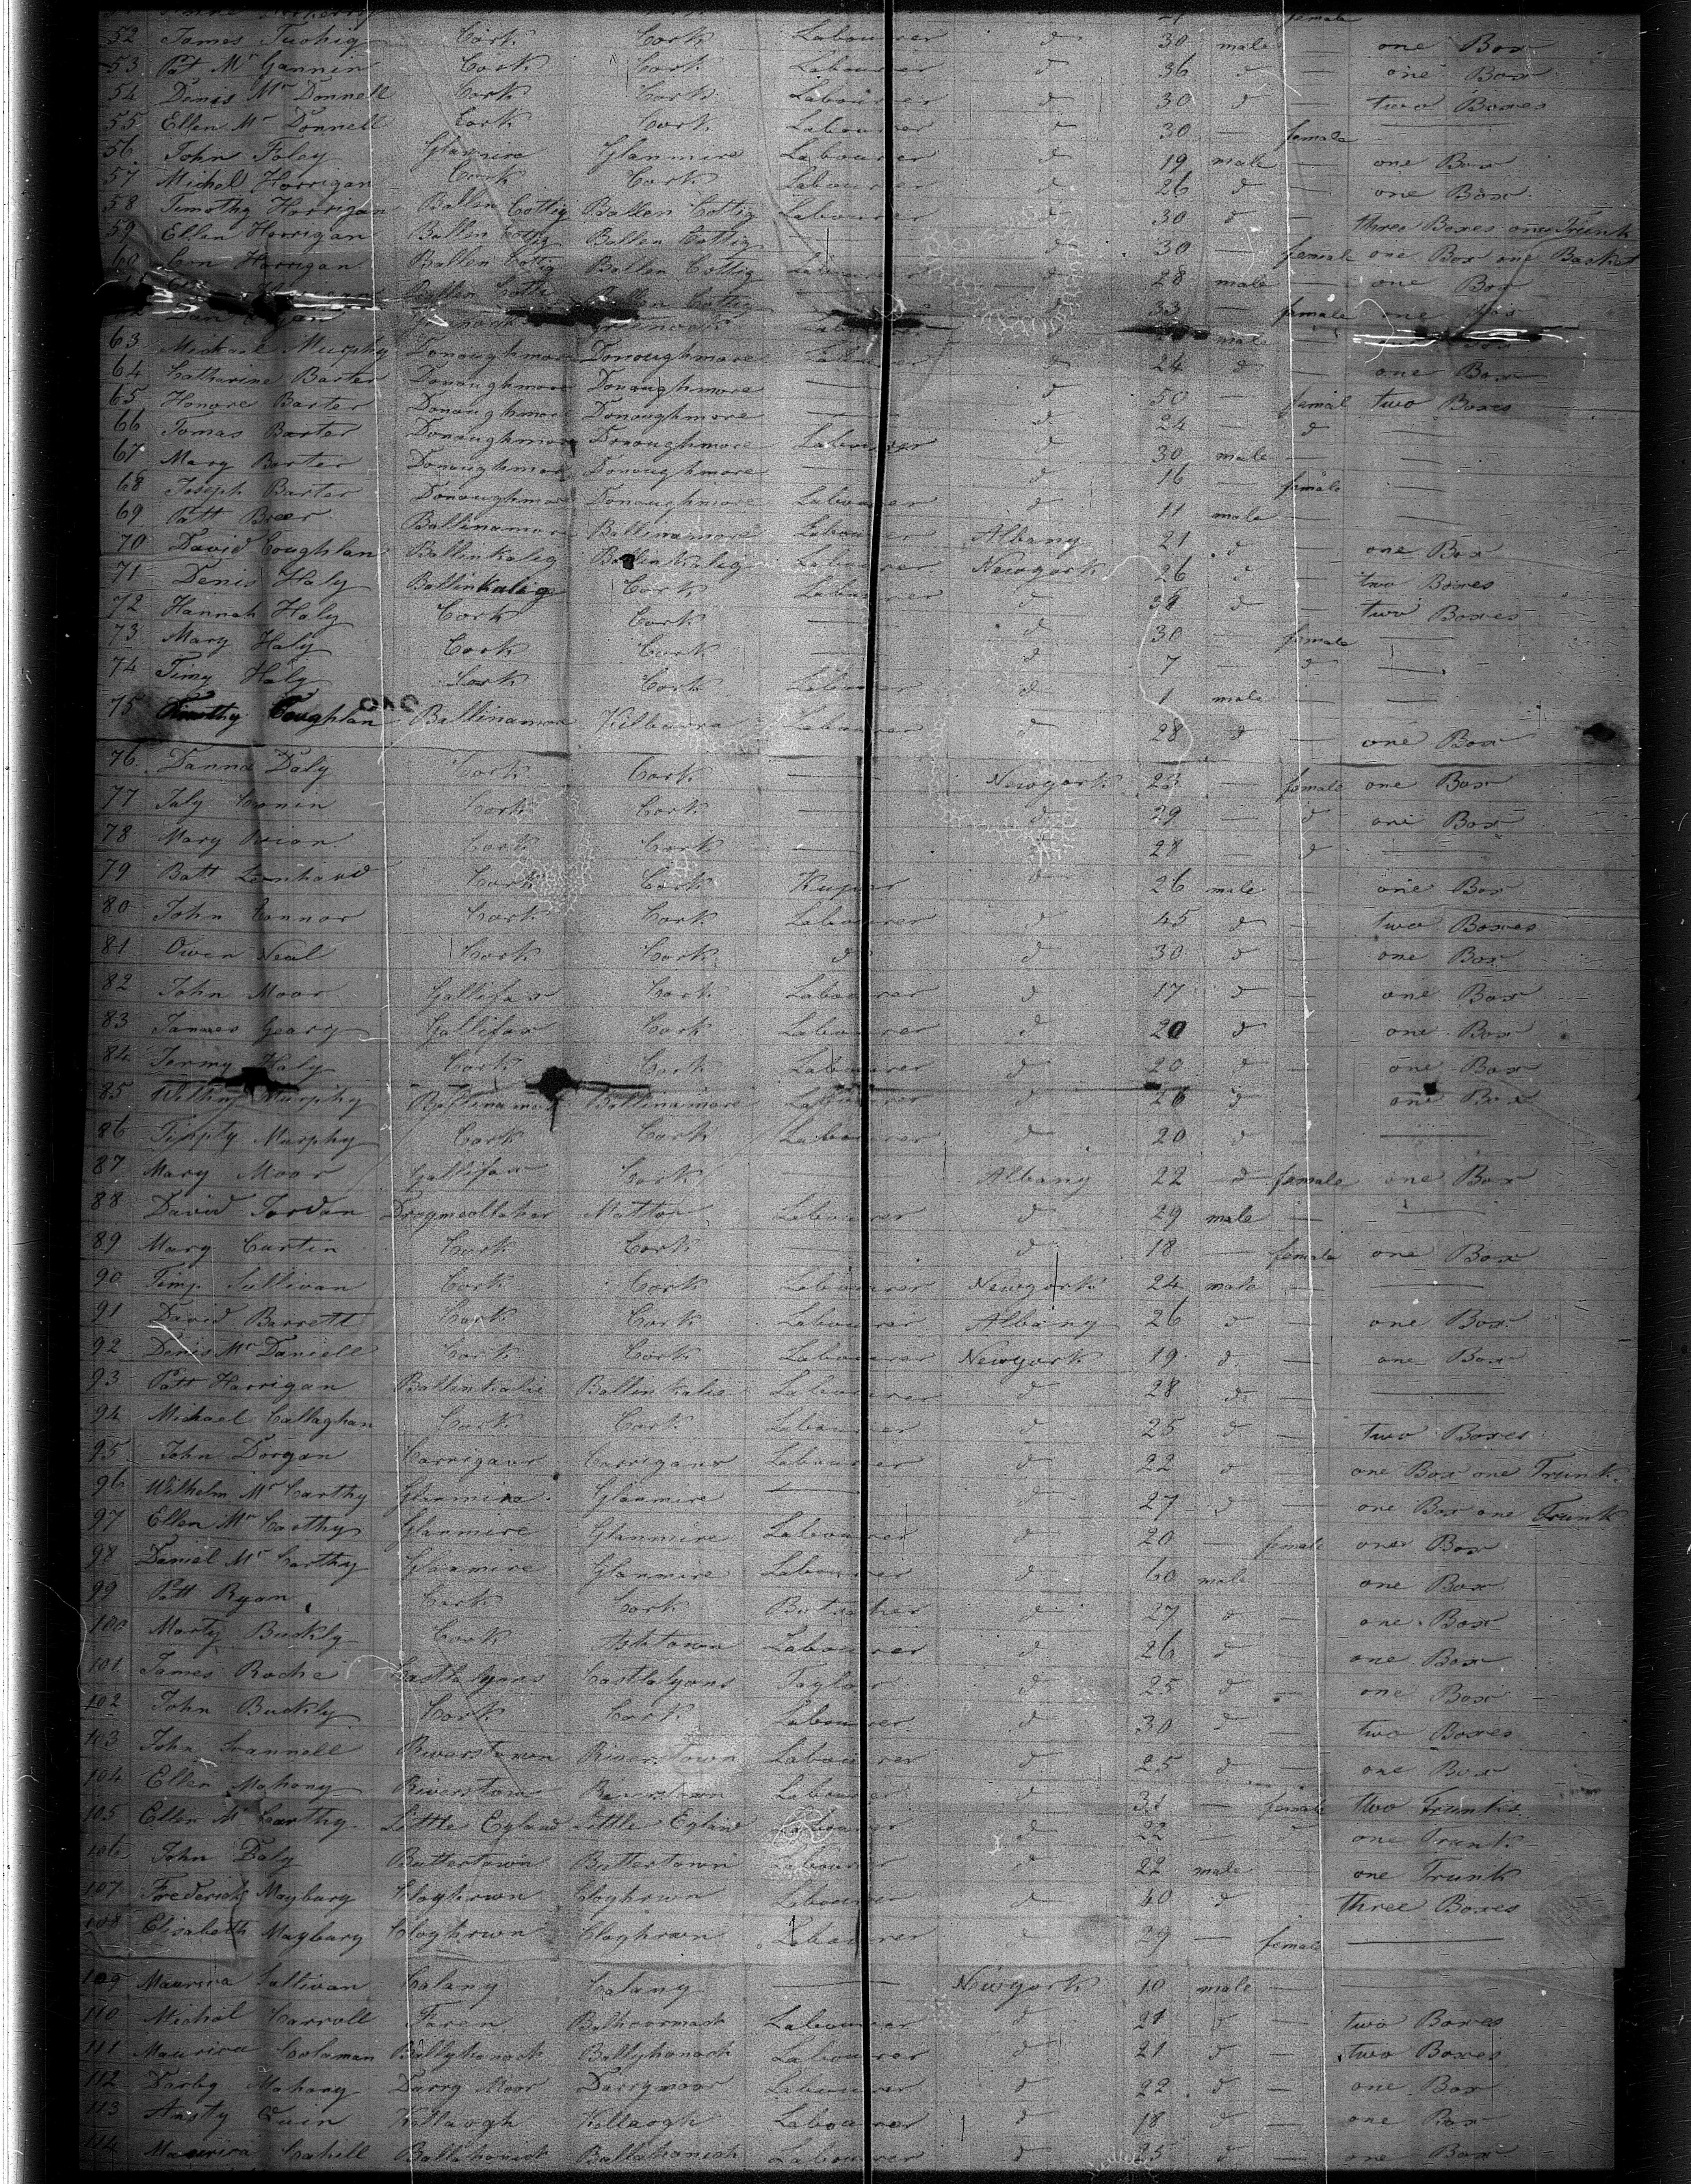 female
52 James Tuohig Cork Cork Labourer d 30 male — one Box
53 Pat Mc Gannin Cork Cork Labourer d 36 d — one Box
54 Denis Mc Donnell Cork Cork Labourer d 30 d — two Boxes
55 Ellen Mc Donnell Cork Cork Labourer d 30 — female —
56 John Foley Glanmire Glanmire Labourer d 19 male — one Box
57 Michel Horrigan Cork Cork Labourer d 26 d — one Box
58 Timothy Horrigan Ballen Cottig Ballen Cottig Labourer d 30 d — three Boxes one Trunk
59 Ellen Horrigan Ballen Cottig Ballen Cottig — d 30 — female one Box one Basket
60 Horrigan Ballen Cottig Ballen Cottig Labourer d 28 male — one Box
Ballen Cottig — 33 — female one Box
male —
63 Michael Murphy Donoughmore Donoughmore Labourer d 24 d — one Box
64 Catharine Barter Donoughmore Donoughmore — d 50 — femal two Boxes
65 Honore Barter Donoughmore Donoughmore — d 24 — d —
66 Tomas Barter Donoughmore Donoughmore Labourer d 30 male — —
67 Mary Barter Donoughmore Donoughmore — d 16 — female —
68 Joseph Barter Donoughmore Donoughmore Labourer d 11 male — —
69 Patt Breer Ballinamore Ballinamore Labourer Albany 21 d — one Box
70 David Coughlan Ballinkalig Ballinkalig Labourer Newyork 26 d — two Boxes
71 Denis Haly Ballinkalig Cork Labourer d d — two Boxes
72 Hannah Haly Cork Cork — d 30 — female —
73 Mary Haly Cork Cork — d 7 — d —
74 Timy Haly Cork Cork Labourer d 1 male —
75 Timothy Coughlan Ballinamore Kilbarra Labourer d 28 d — one Box
76 Danna Daly Cork Cork — Newyork 23 — female one Box
77 July Cronin Cork Cork — d 29 — d one Box
78 Mary Cork Cork — d 28 — d —
79 Batt Leonhard Cork Cork d 26 male — one Box
80 John Connor Cork Cork Labourer d 45 d — two Boxes
81 Owen Neal Cork Cork d d 30 d — one Box
82 John Moor Gallifax Cork Labourer d 17 d — one Box
83 James Geary Gallifax Cork Labourer d 20 d — one Box
84 Jermy Haly Cork Cork Labourer d 20 d — one Box
85 Murphy Ballinamore Ballinamore Labourer d 26 d one Box
86 Timpty Murphy Cork Cork Labourer d 20 d —
87 Mary Moor Gallifax Cork — Albany 22 d female one Box
88 David Jordan Dragmeollaher Mattor Labourer d 29 male — —
89 Mary Curtin Cork Cork — d 18 — female one Box
90 Timp. Sullivan Cork Cork Labourer Newyork 24 male — —
91 David Barrett Cork Cork Labourer Albany 26 d — one Box
92 Denis Mc Daniell Cork Cork Labourer Newyork 19 d — one Box
93 Patt Harrigan Ballinkalie Ballinkalie Labourer d 28 d — —
94 Michael Callaghan Cork Cork Labourer d 25 d — two Boxes
95 John Dorgan Carrigaur Carrigaur Labourer d 22 d — one Box one Trunk
96 Wilhelm Mc Carthy Glanmire Glanmire — d 27 d — one Box one Trunk
97 Ellen Mc Carthy Glanmire Glanmire Labourer d 20 — female one Box
98 Daniel Mc Carthy Glanmire Glanmire Labourer d 60 male — one Box
99 Patt Ryan Cork Cork Butcher d 27 d — one Box
100 Marty Buckly Cork Ashtown Labourer d 26 d — one Box
101 James Roche Castlelyons Castlelyons Taylor d 25 d — one Box
102 John Buckly Cork Cork Labourer d 30 d — two Boxes
103 John Scannell Riverstown Riverstown Labourer d 25 d — one Box
104 Ellen Mahony Riverstown Riverstown Labourer d 31 — female two Trunks
105 Ellen Mc Carthy Little Egland Little Egland Labourer d 22 — one Trunk
106 John Daly Buttertown Buttertown Labourer d 22 male — one Trunk
107 Frederick Maybury Cloghrown Cloghrown Labourer d 40 d — three Boxes
108 Elisabeth Maybury Cloghrown Cloghrown Labourer d 29 — female —
109 Maurica Sullivan Calany Calany — Newyork 10 male — —
110 Michal Carroll Faren Balhcormack Labourer d 21 d — two Boxes
111 Maurica Colaman Ballyhonock Ballyhonock Labourer d 21 d — two Boxes
112 Darby Mahony Darry Moor Darrymoor Labourer d 22 d — one Box
113 Ansty Quin Kollaogh Kollaogh Labourer d 18 d — one Box
114 Maurica Cahill Ballahonick Ballahonick Labourer d 25 d — one Box